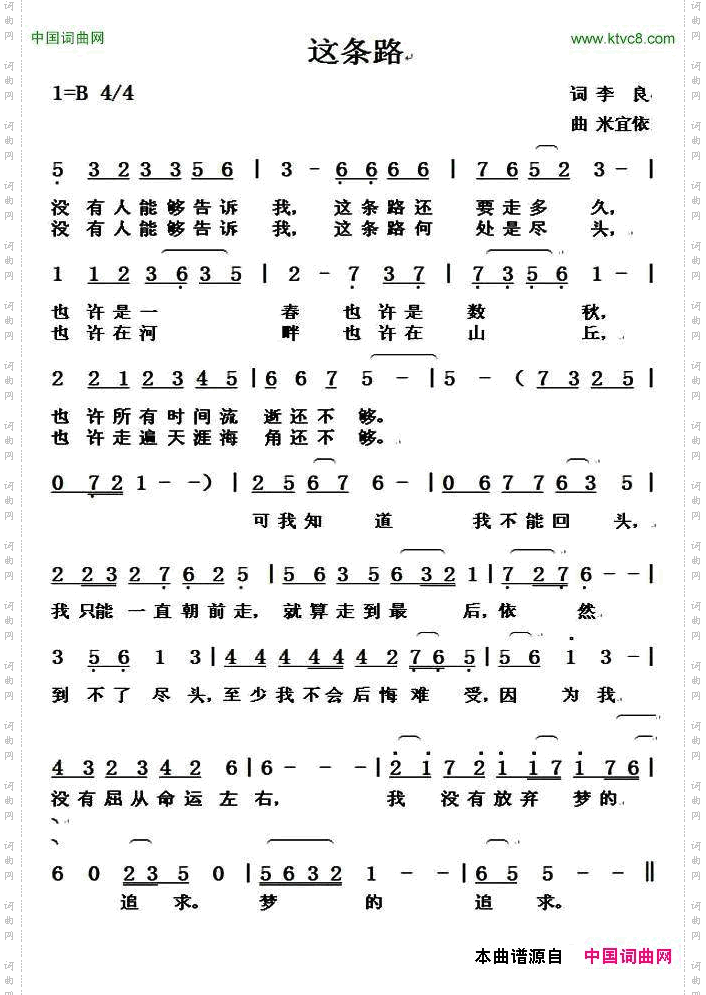 中国词曲网
www.ktvc8.com
这条路
1=B 4/4
词 李 良
曲 米宜依
5 3 2 3 3 5 6 | 3 - 6 6 6 6 | 7 6 5 2 3 - |
没有人能够告诉 我, 这条路还 要走多 久,
没有人能够告诉 我, 这条路何 处是尽 头,
1 1 2 3 6 3 5 | 2 - 7 3 7 | 7 3 5 6 1 - |
也 许是一 春 也 许是 数 秋,
也 许在河 畔 也 许在 山 丘,
2 2 1 2 3 4 5 | 6 6 7 5 - | 5 - ( 7 3 2 5 |
也 许所有时间流 逝还不 够。
也 许走遍天涯海 角还不 够。
0 7 2 1 - - ) | 2 5 6 7 6 - | 0 6 7 7 6 3 5 |
可我知 道 我不能回 头,
2 2 3 2 7 6 2 5 | 5 6 3 5 6 3 2 1 | 7 2 7 6 - - |
我 只能 一直朝前走, 就算走到最 后,依 然
3 5 6 1 3 | 4 4 4 4 4 2 7 6 5 | 5 6 1 3 - |
到 不了 尽 头,至少我不会后悔难 受,因 为我
4 3 2 3 4 2 6 | 6 - - - | 2 1 7 2 1 1 7 1 7 6 |
没有屈从命运左右, 我 没有放弃 梦的
6 0 2 3 5 0 | 5 6 3 2 1 - - | 6 5 5 - - ‖
追 求。 梦 的 追 求。
本曲谱源自 中国词曲网
词曲网